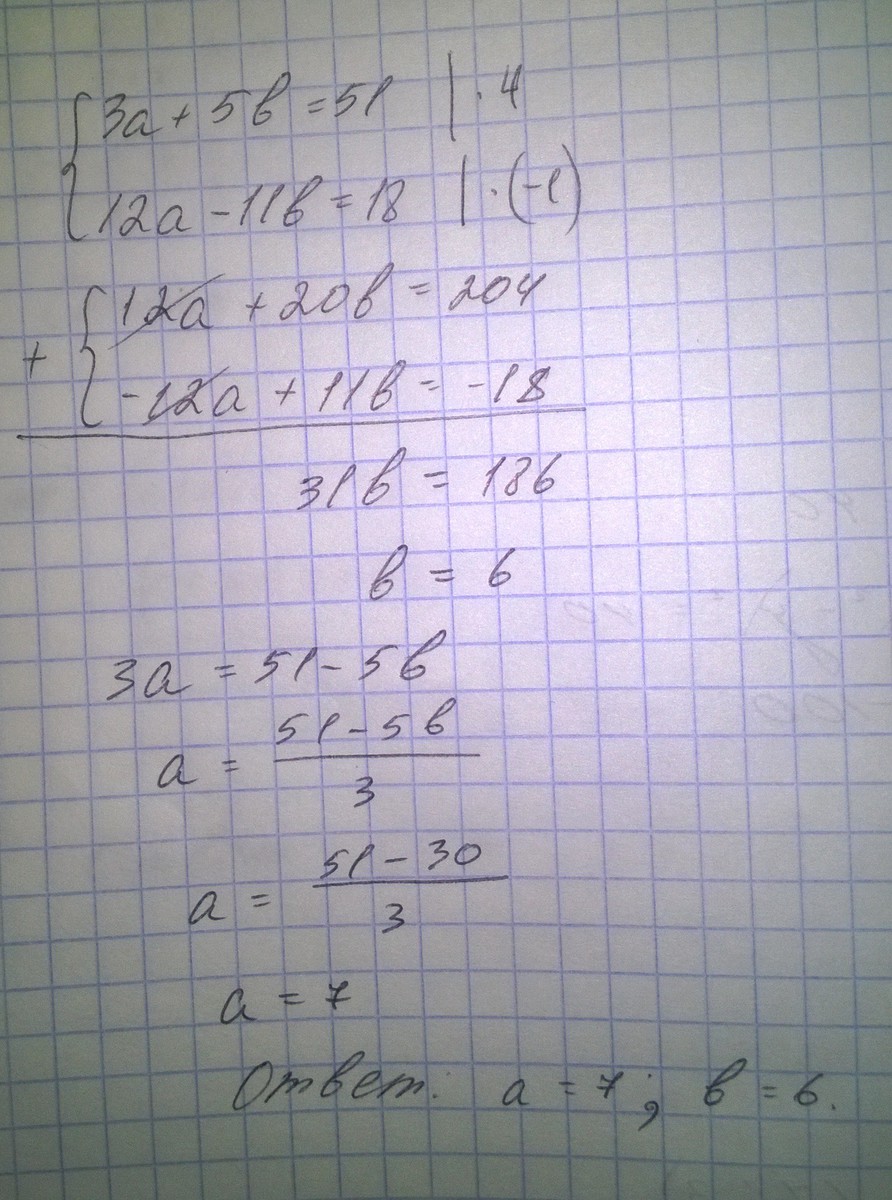 {3a + 5b = 51 | · 4
{12a - 11b = 18 | · (-1)
+ {12a + 20b = 204
{-12a + 11b = -18
31b = 186
b = 6
3a = 51 - 5b
a = (51 - 5b)/3
a = (51 - 30)/3
a = 7
Ответ: a = 7; b = 6.